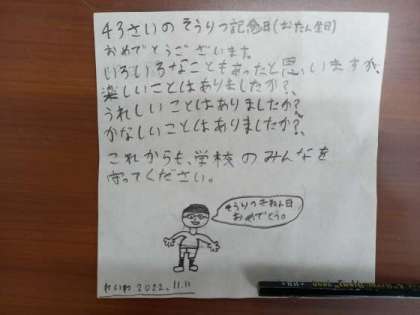 43さいの そうりつ記念日(おたん生日)
おめでとうございます。
いろいろなこともあったと思いますが、
楽しいことはありましたか?、
うれしいことはありましたか?
かなしいことはありましたか?、
これからも、学校のみんなを
守ってください。
そうりつきねん日
おめでとう。
れいわ 2022.11.11